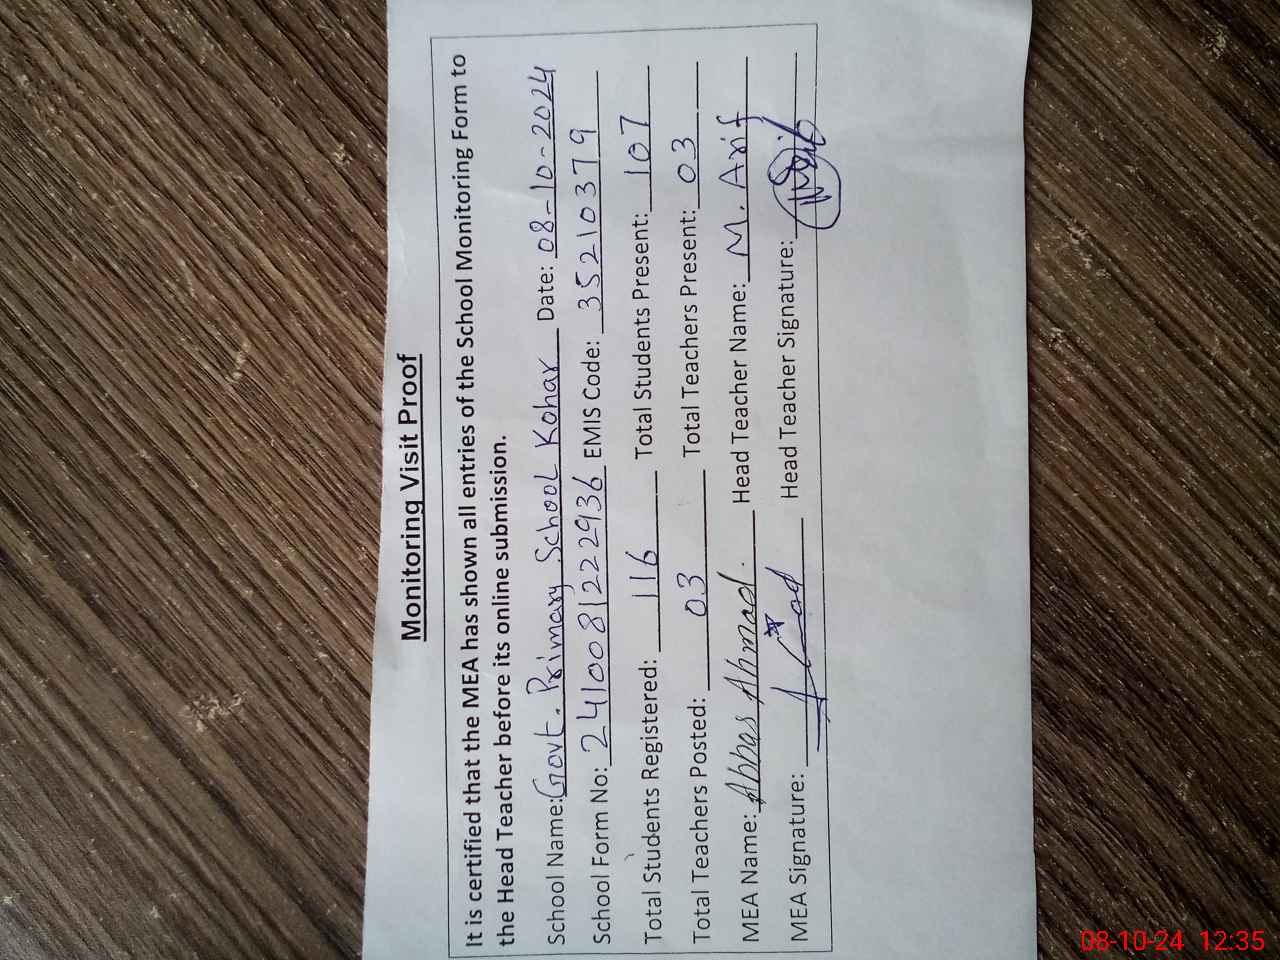 Monitoring Visit Proof
It is certified that the MEA has shown all entries of the School Monitoring Form to
the Head Teacher before its online submission.
School Name: Govt. Primary School Kohar Date: 08-10-2024
School Form No: 241008122936 EMIS Code: 35210379
Total Students Registered: 116 Total Students Present: 107
Total Teachers Posted: 03 Total Teachers Present: 03
MEA Name: Abbas Ahmad. Head Teacher Name: M. Arif
MEA Signature: Head Teacher Signature:
08-10-24 12:35